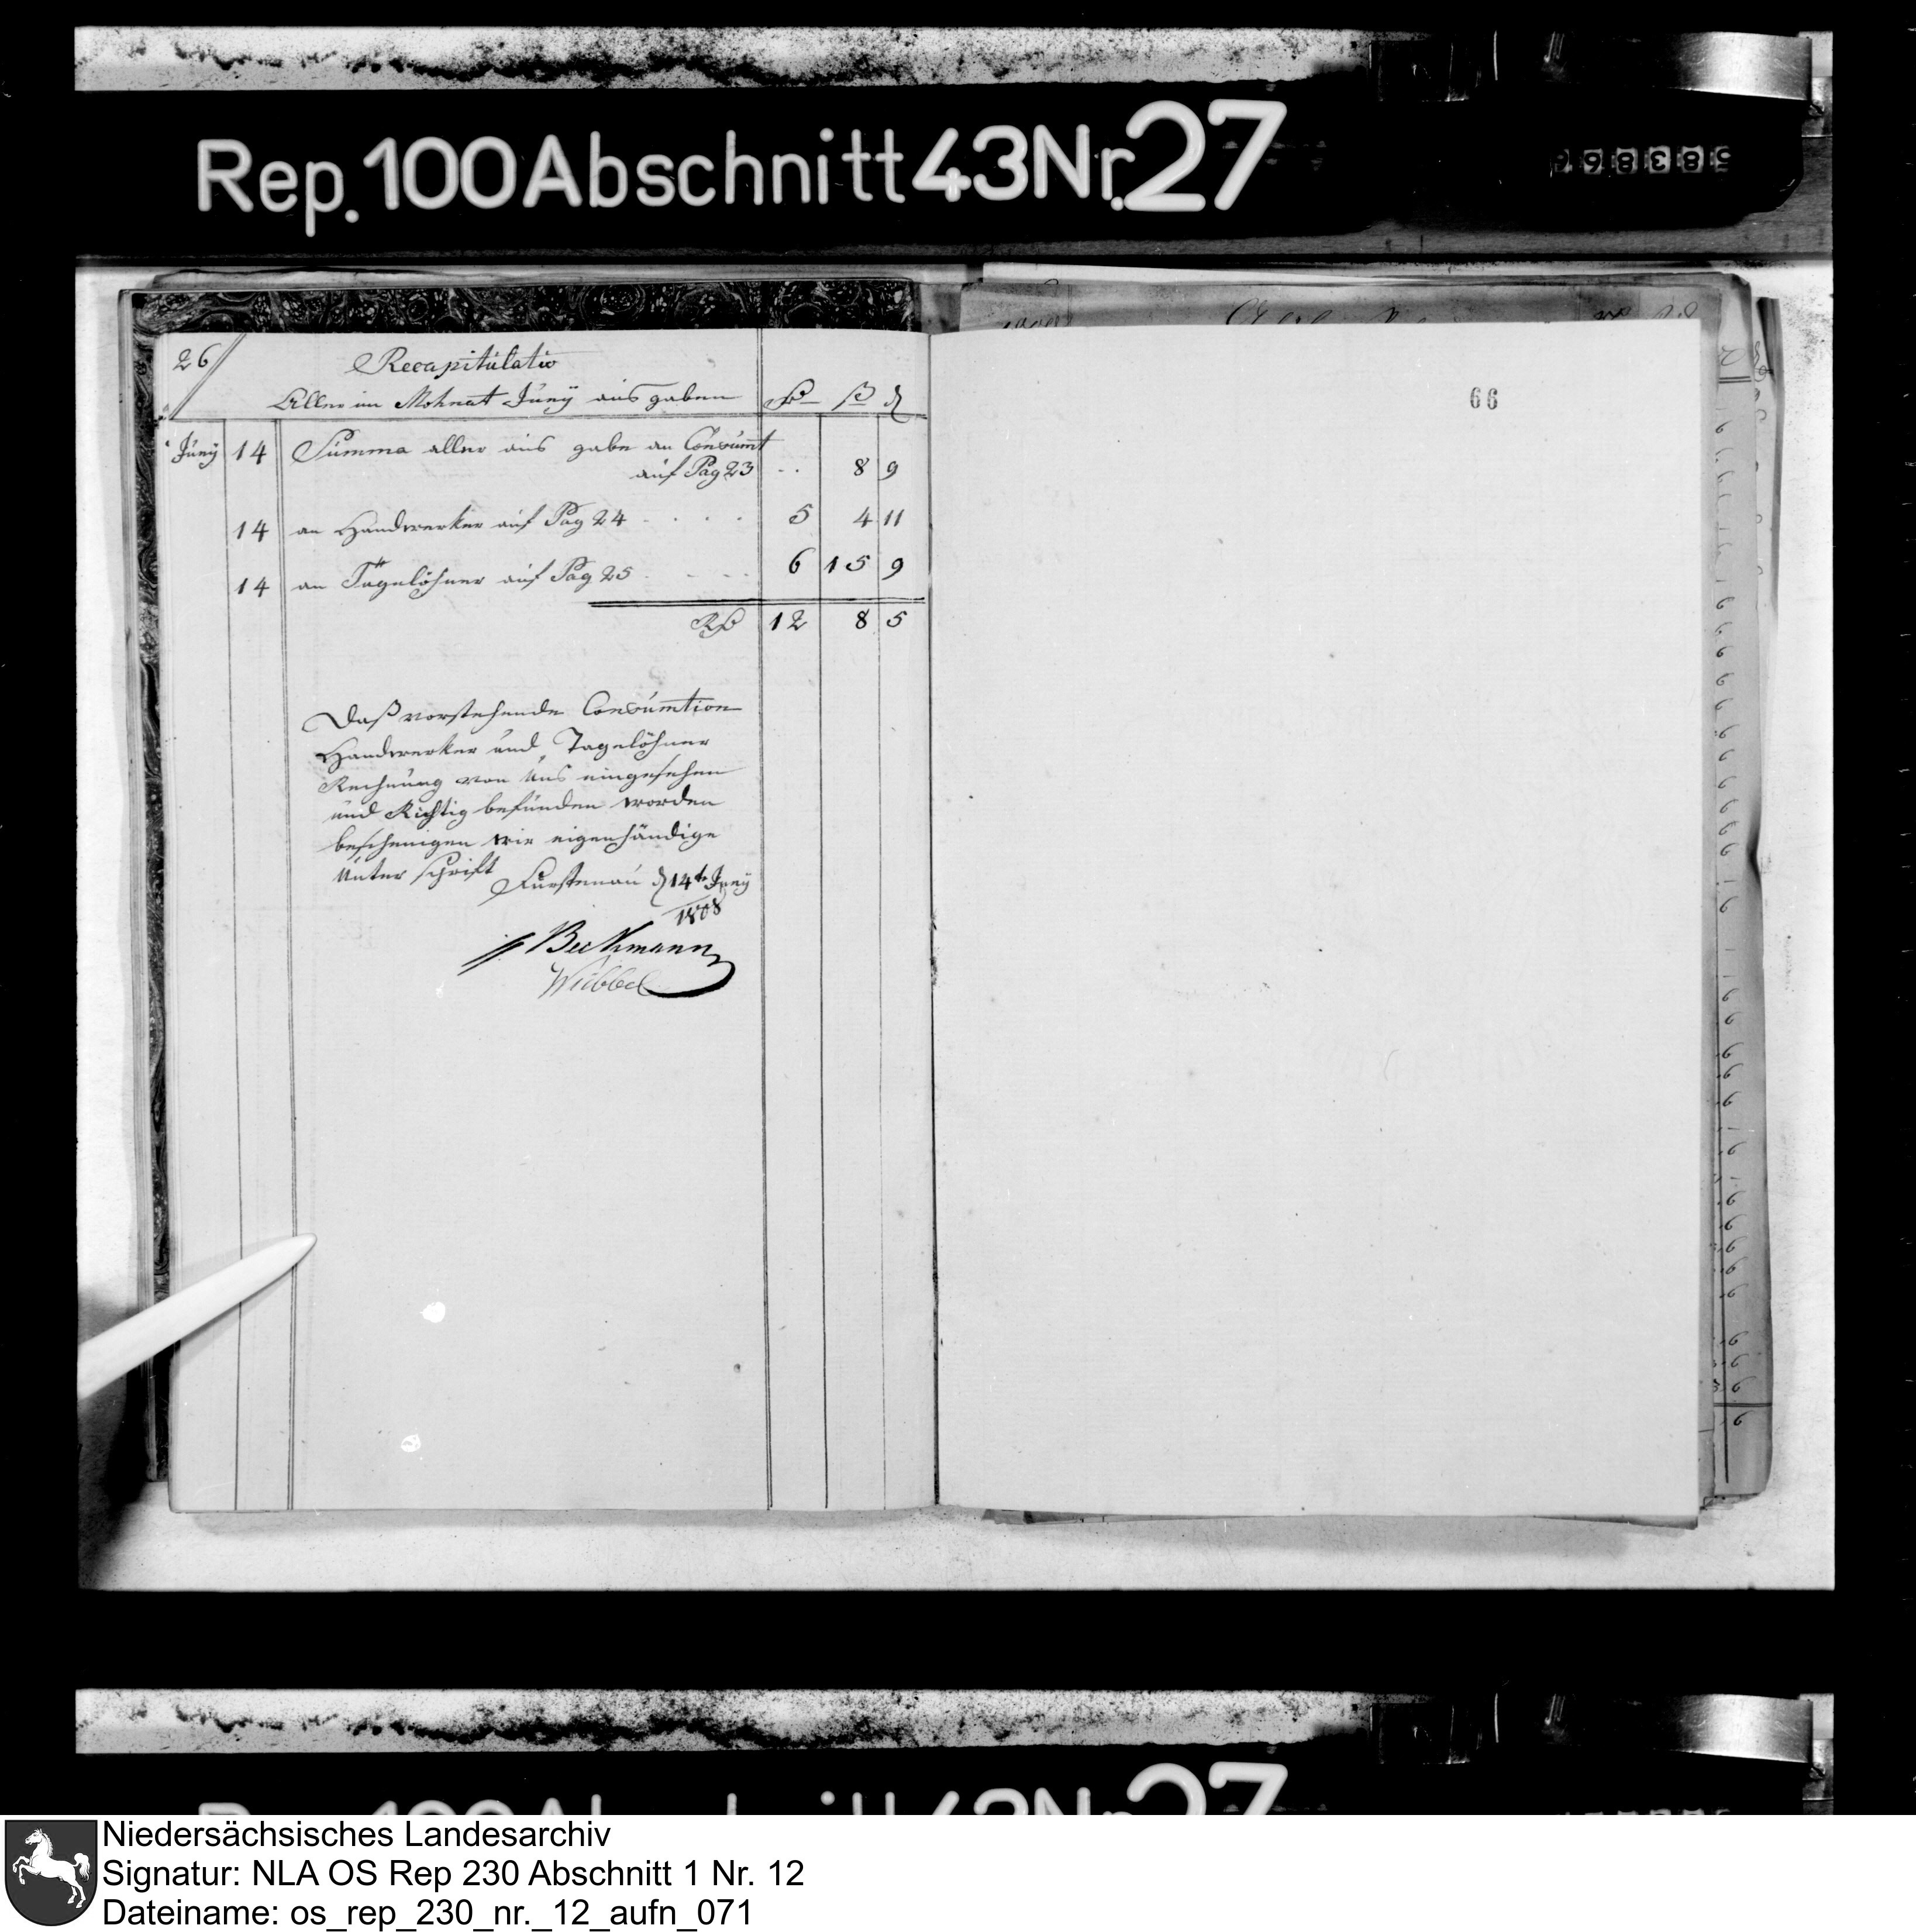 Rep. 100 Abschnitt 43 Nr. 27
26
Recapitulatio
Aller im Mohnat Juny ausgaben
Rß ß d
Juny 14 Summa aller aus gabe an Consumt
auf Pag 23 .. 8 9
14 an Handwerker auf Pag 24 . . . . 5 4 11
14 an Tägelöhner auf Pag 25 . . . . 6 15 9
Rß 12 8 5
Daß vorstehende Consumtion
Handwerker und Tagelöhner
Rechnung von uns eingesehen
und Richtig befunden worden
bescheinigen wir eigenhändige
Unter schrift
Furstenau d 14te Juny
1808
Beckmann
Wibbel
66
Niedersächsisches Landesarchiv
Signatur: NLA OS Rep 230 Abschnitt 1 Nr. 12
Dateiname: os_rep_230_nr._12_aufn_071